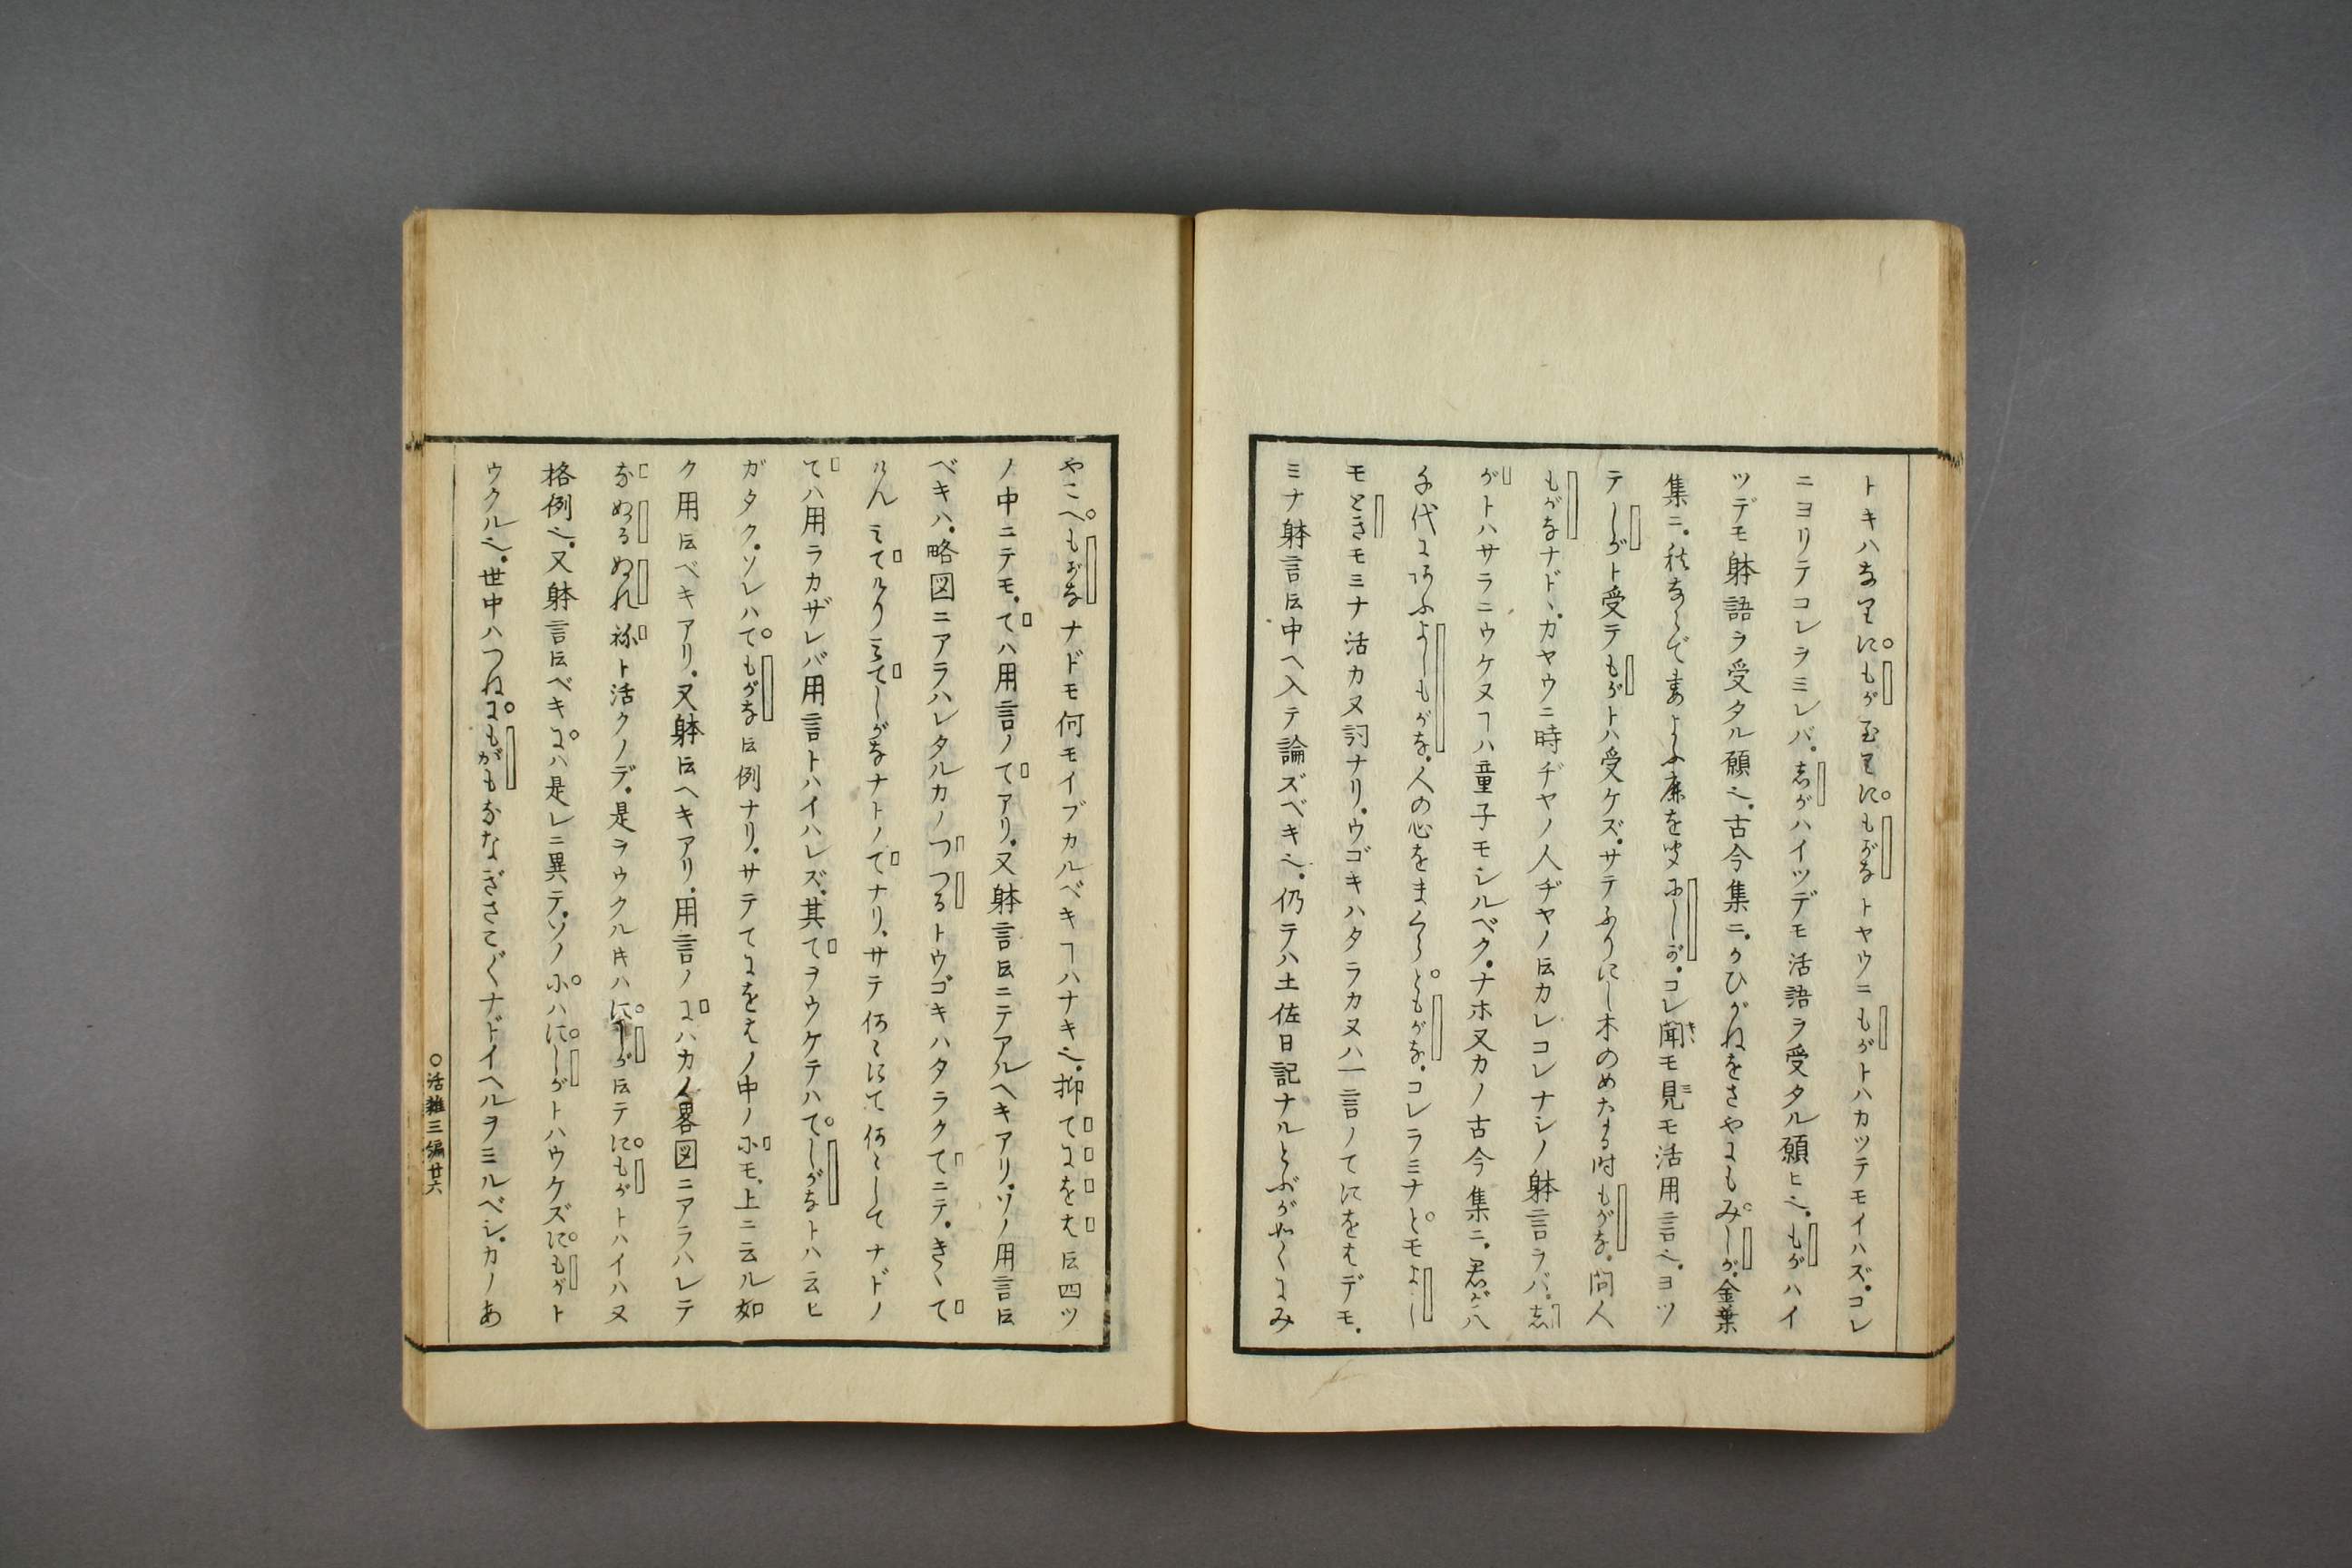 トキハなりにもが至りにもがなトヤウニもがトハカツテモイハズ。コレ
ニヨリテコレラミレバ。志がハイツデモ活語ヲ受タル願ヒ也。もがハイ
ツデモ躰語ヲ受タル願也。古今集ニ。かひがねをさやにもみしが。金葉
集ニ。秋ならで妻よぶ鹿を聞にしが。コレ聞モ見モ活用言也。ヨツ
テしがト受テもがトハ受ケズ。サテふりにし木のめたる時もがな。問人
もがなナド、カヤウニ時ヂヤノ人ヂヤノ𪜈カレコレナシノ躰言ラバ。志
がトハサラニウケヌヿハ童子モシルベク。ナホ又カノ古今集ニ。君が八
千代にあふよしもがな。人の心をまくらともがな。コレラミナとモよし
モときモミナ活カヌ詞ナリ。ウゴキハタラカヌハ一言ノてにをはデモ。
ミナ躰言𪜈中ヘ入テ論ズベキ也。仍テハ土佐日記ナルとぶが如くにみ
やこへもがなナドモ何モイブカルベキヿハナキ也。抑てにをは𪜈四ツ
ノ中ニテモ。てハ用言ノてアリ。又躰言𪜈ニテアルヘキアリ。ソノ用言𪜈
ベキハ。略図ニアラハレタルカノつつるトウゴキハタラクてニテ。きゝて
けんみてけりみてしがなナトノてナリ。サテ何〻にて何〻してナドノ
てハ用ラカザレバ用言トハイハレズ。其てヲウケテハてしがなトハ云ヒ
ガタク。ソレハてもがな𪜈例ナリ。サテてにをはノ中ノにモ。上ニ云ル如
ク用𪜈ベキアリ。又躰𪜈ヘキアリ。用言ノにハカノ畧図ニアラハレテ
なぬるぬれねト活クノデ。是ヲウクル片ハにしが𪜈テにもがトハイハヌ
格例也。又躰言𪜈ベキにハ是レニ異テ。ソノにハにしがトハウケズにもがト
ウクル也。世中ハつねにもがもななぎさこぐナドイヘルヲミルベシ。カノあ
○活雑三編廿六